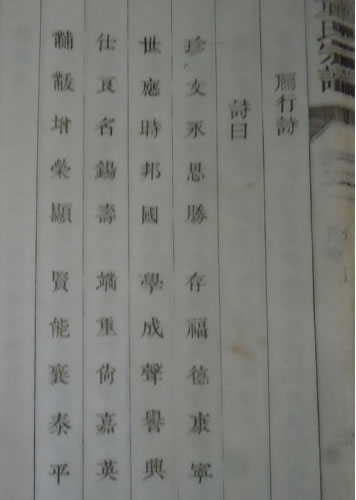 氏宗譜
鴈行詩
詩曰
珍文永思勝 存福德康寧
世應時邦國 學成聲譽興
仕良名錫壽 端重尚嘉英
黼黻增榮顯 賢能襄泰平